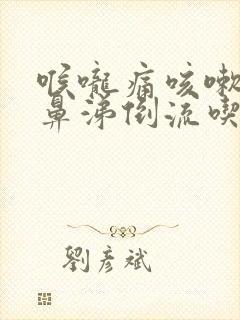 喉嚨痛咳嗽
鼻涕倒流喫
劉彥斌